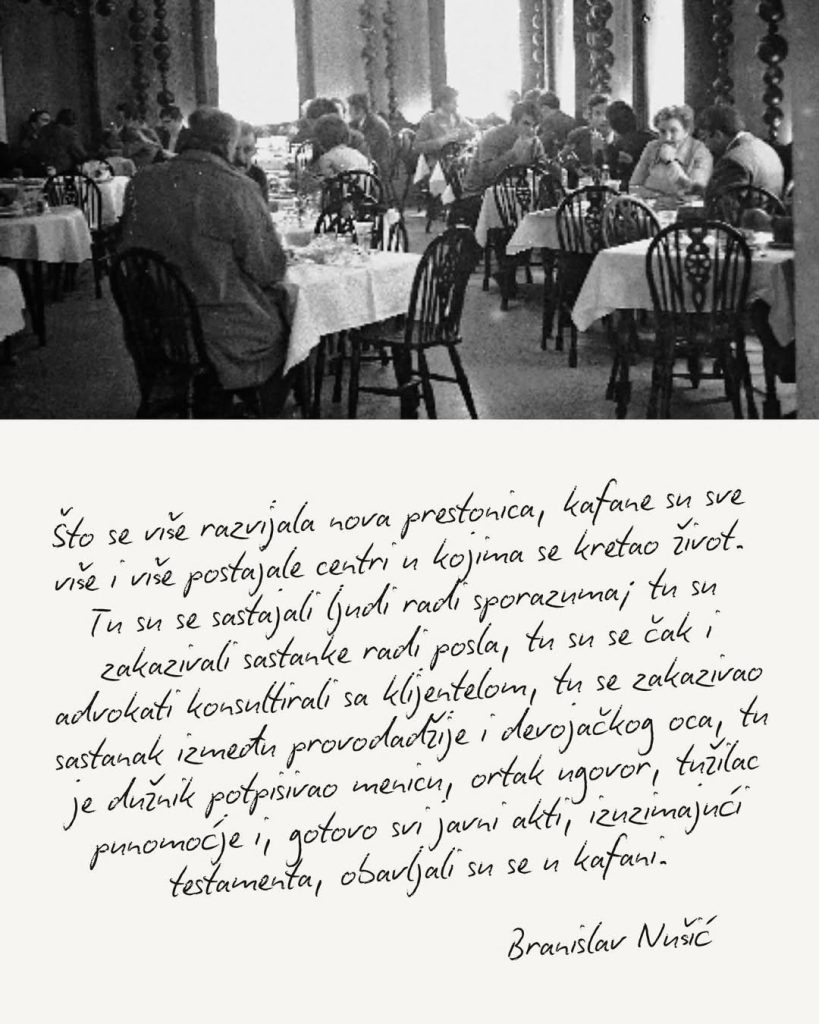 Što se više razvijala nova prestonica, kafane su sve
više i više postajale centri u kojima se kretao život.
Tu su se sastajali ljudi radi sporazuma; tu su
zakazivali sastanke radi posla, tu su se čak i
advokati konsultirali sa klijentelom, tu se zakazivao
sastanak između provodadžije i devojačkog oca, tu
je dužnik potpisivao menicu, ortak ugovor, tužilac
punomoćje i, gotovo svi javni akti, izuzimajući
testamenta, obavljali su se u kafani.
Branislav Nušić